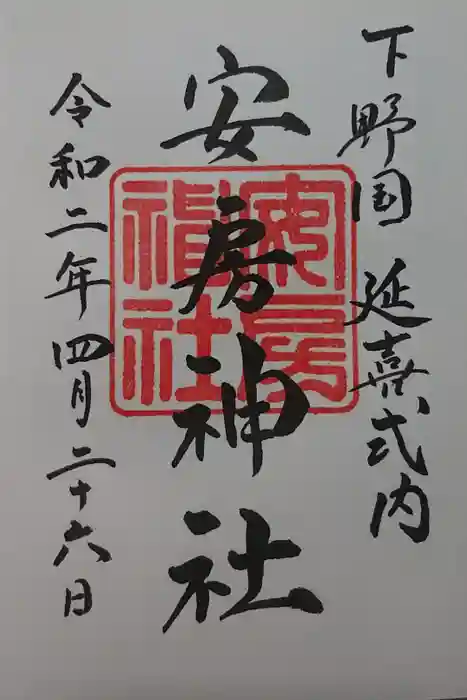 下野国 延喜式内
安房神社
令和二年四月二十六日
安房
神社